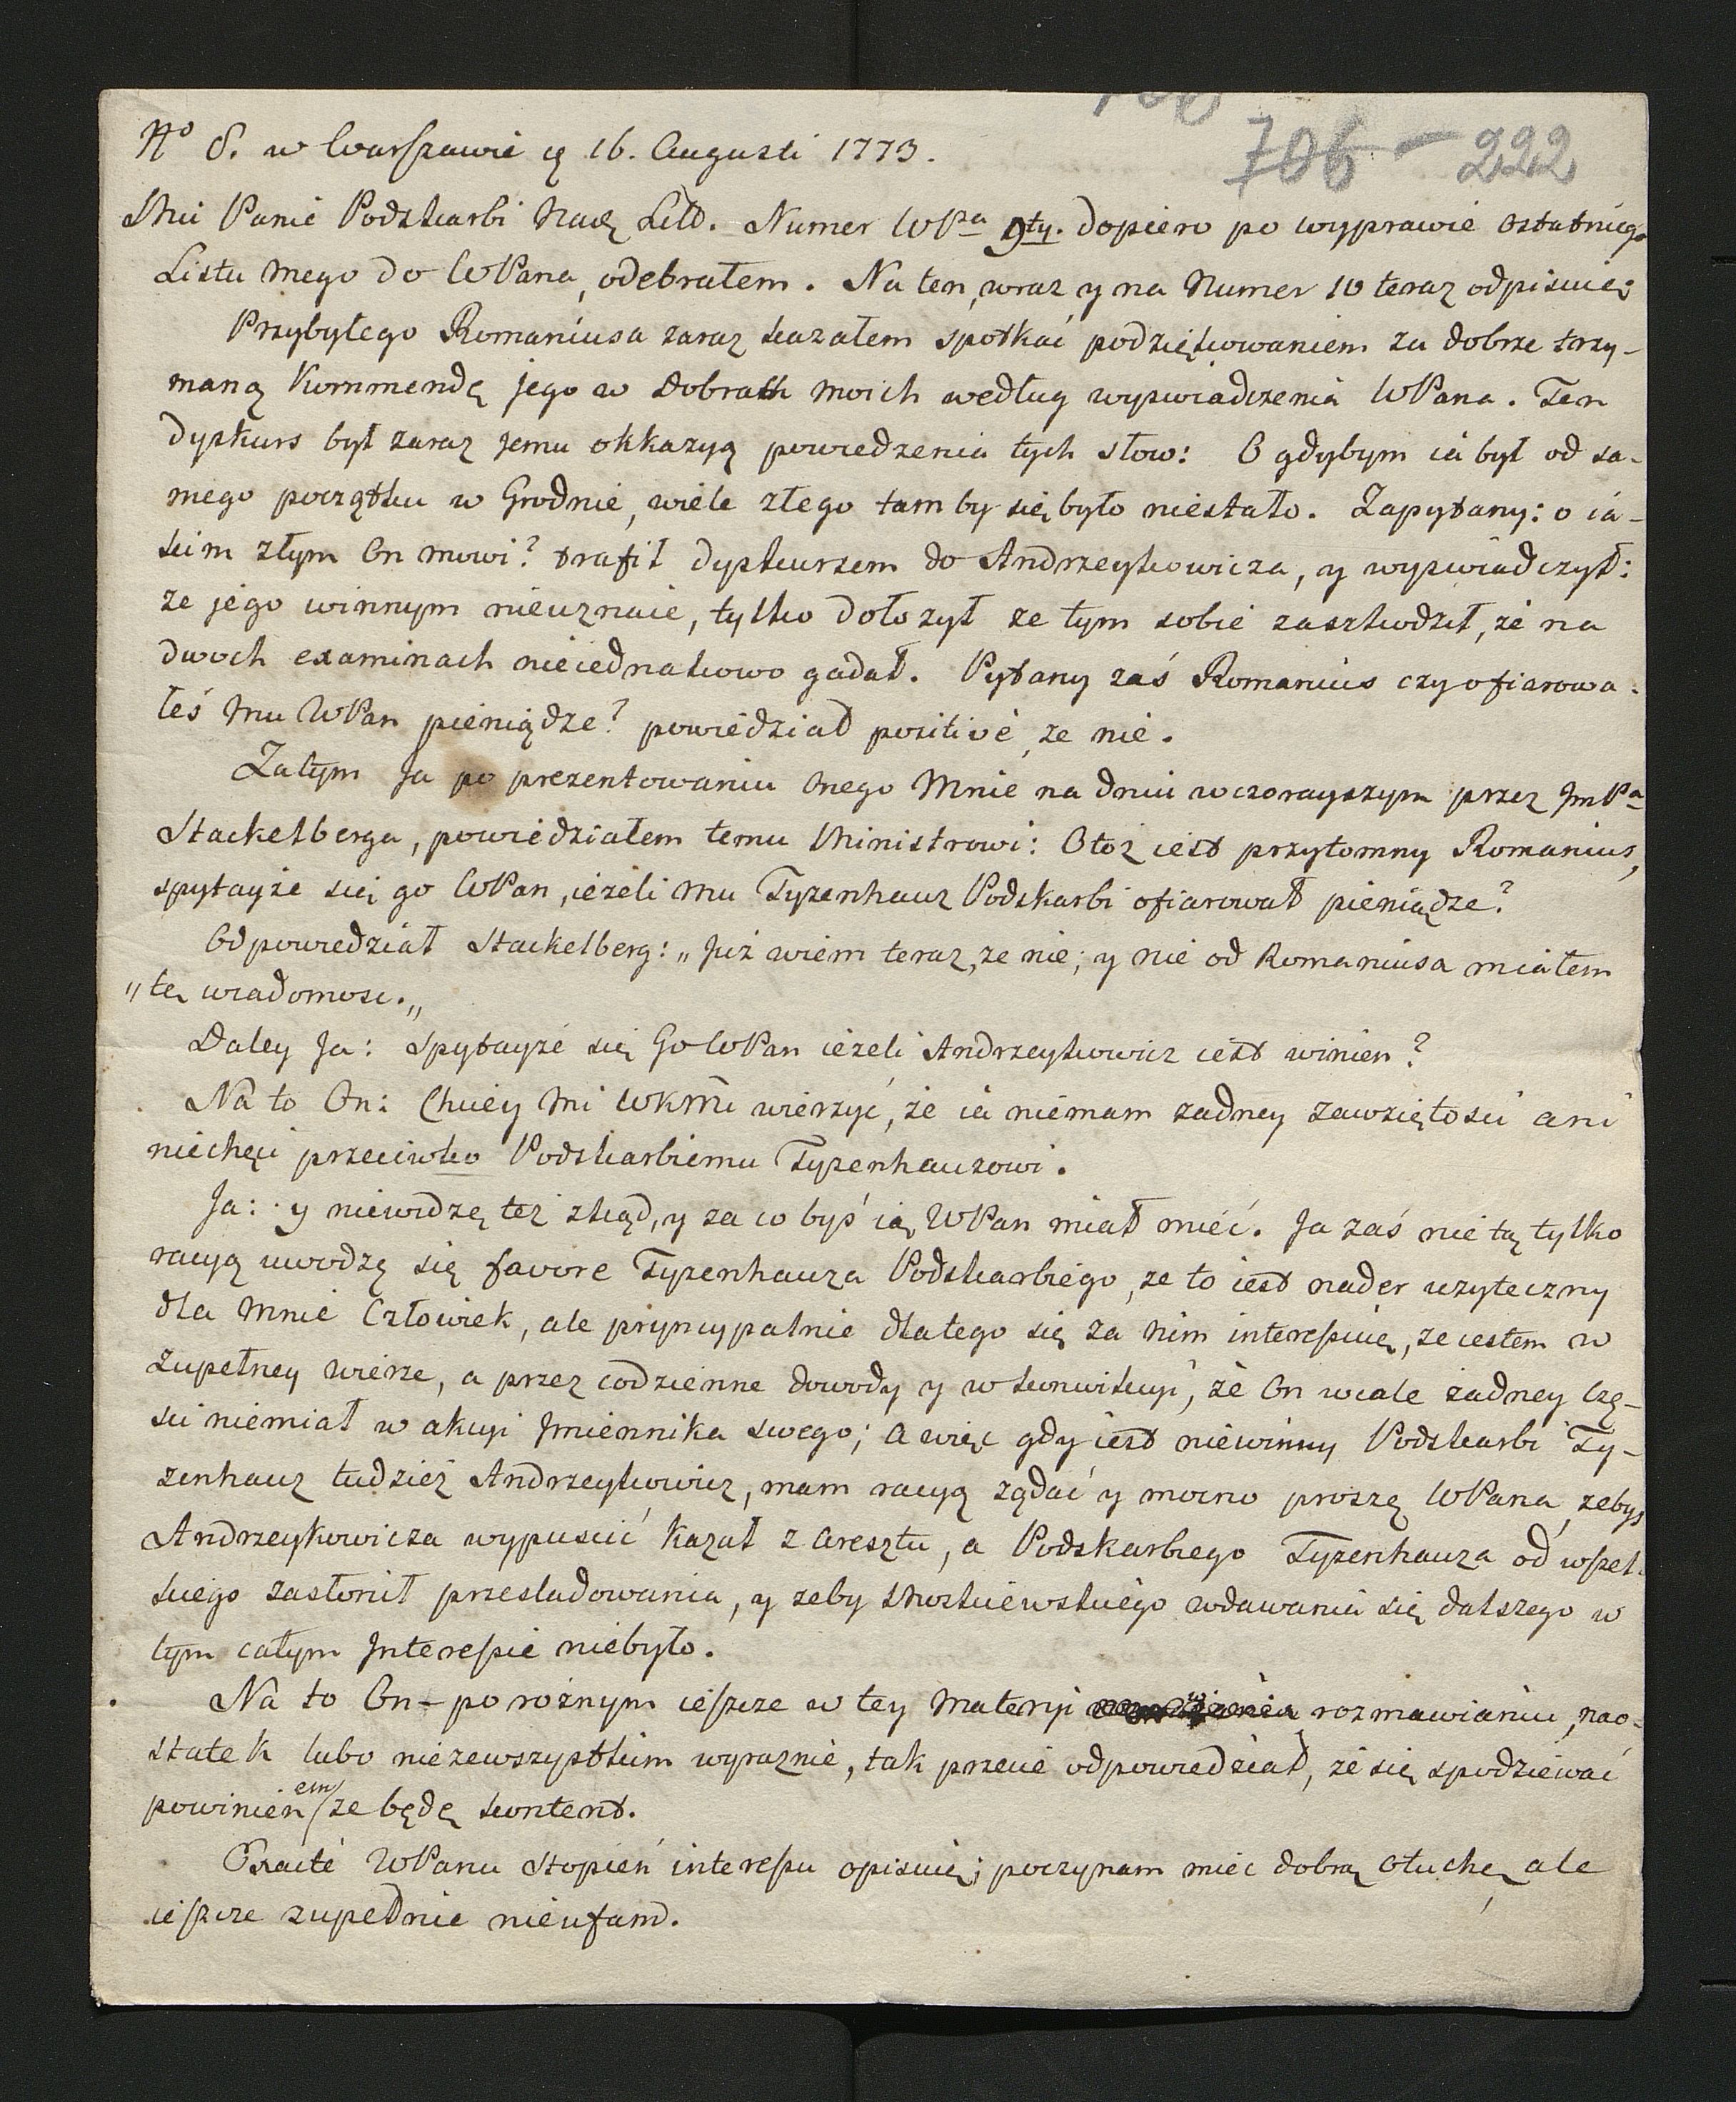 706 - 222
No 8. w Warszawie q 16. Augusti 1773.
Mci Panie Podskarbi Nadę Litt. Numer WPa 9ty. dopiero po wyprawie ostatniego
Listu mego do WPana, odebrałem. Na ten, wraz y na Numer 10 teraz odpisuię;
Przybyłego Romaniusa zaraz kazałem spotkać podziękowaniem za dobrze trzy-
maną Kommendę jego w dobrach moich według wyswiadczenia WPana. Ten
dyskurs był zaraz jemu okkazyą powiedzenia tych słow: O gdybym ia był od sa-
mego początku w Grodnie, wiele złego tam by się było niestało. Zapytany: o ia-
kim złym On mowi? trafił dyskursem do Andrzeykowicza, y wyswiadczył:
ze jego winnym nieuznaie, tylko dołozył ze tym sobie zaszkodził, że na
dwoch examinach nieiednakowo gadał. Pytany zaś Romanius czy ofiarowa-
łeś mu WPan pieniądze? powiedział positivè, ze nie.
Zatym Ja po prezentowaniu onego Mnie na dniu wczorayszym przez JmPa
Stackelberga, powiedziałem temu Ministrowi: Otoż iest przytomny Romanius,
spytayże się go WPan, ieżeli mu Tyzenhauz Podskarbi ofiarował pieniądze?
Odpowiedział Stackelberg: „Już wiem teraz, ze nie; y nie od Romaniusa miałem
„tę wiadomosc.„
Daley Ja: Spytayże się Go WPan ieżeli Andrzeykowicz iest winien?
Na to On: Chciey Mi WKMć wierzyć, że ia niemam zadney zawziętosci ani
niechęci przeciwko Podskarbiemu Tyzenhauzowi.
Ja: y niewidzę tez zkąd, y za co byś ią WPan miał mieć. Ja zaś nie tą tylko
racyą uwodzę się favore Tyzenhauza Podskarbiego, ze to iest nader uzyteczny
dla Mnie Człowiek, ale pryncypalnie dlatego się za nim interessuię, ze iestem w
zupełney wierze, a przez codzienne dowody y w konwikcyi, że On wcale żadney Czę-
sci niemiał w akcyi Jmiennika swego; a więc gdy iest niewinny Podskarbi Ty-
zenhauz tudzież Andrzeykowicz, mam racyą żądać y mocno proszę WPana, żebys
Andrzeykowicza wypuscić kazał z aresztu, a Podskarbiego Tyzenhauza od wszel-
kiego zasłonił przesladowania, y zeby Moskiewskiego wdawania się dalszego w
tym całym Jnteressie niebyło.
Na to On - po rożnym ieszcze w tey Materyi rozmawianiu, nao-
statek lubo niezewszystkim wyraznie, tak przecie odpowiedział, że się spodziewać
powinienem ze będę kontent.
Exacte WPanu stopień interessu opisuię; poczynam miec dobrą otuchę, ale
ieszcze zupełnie nieufam.